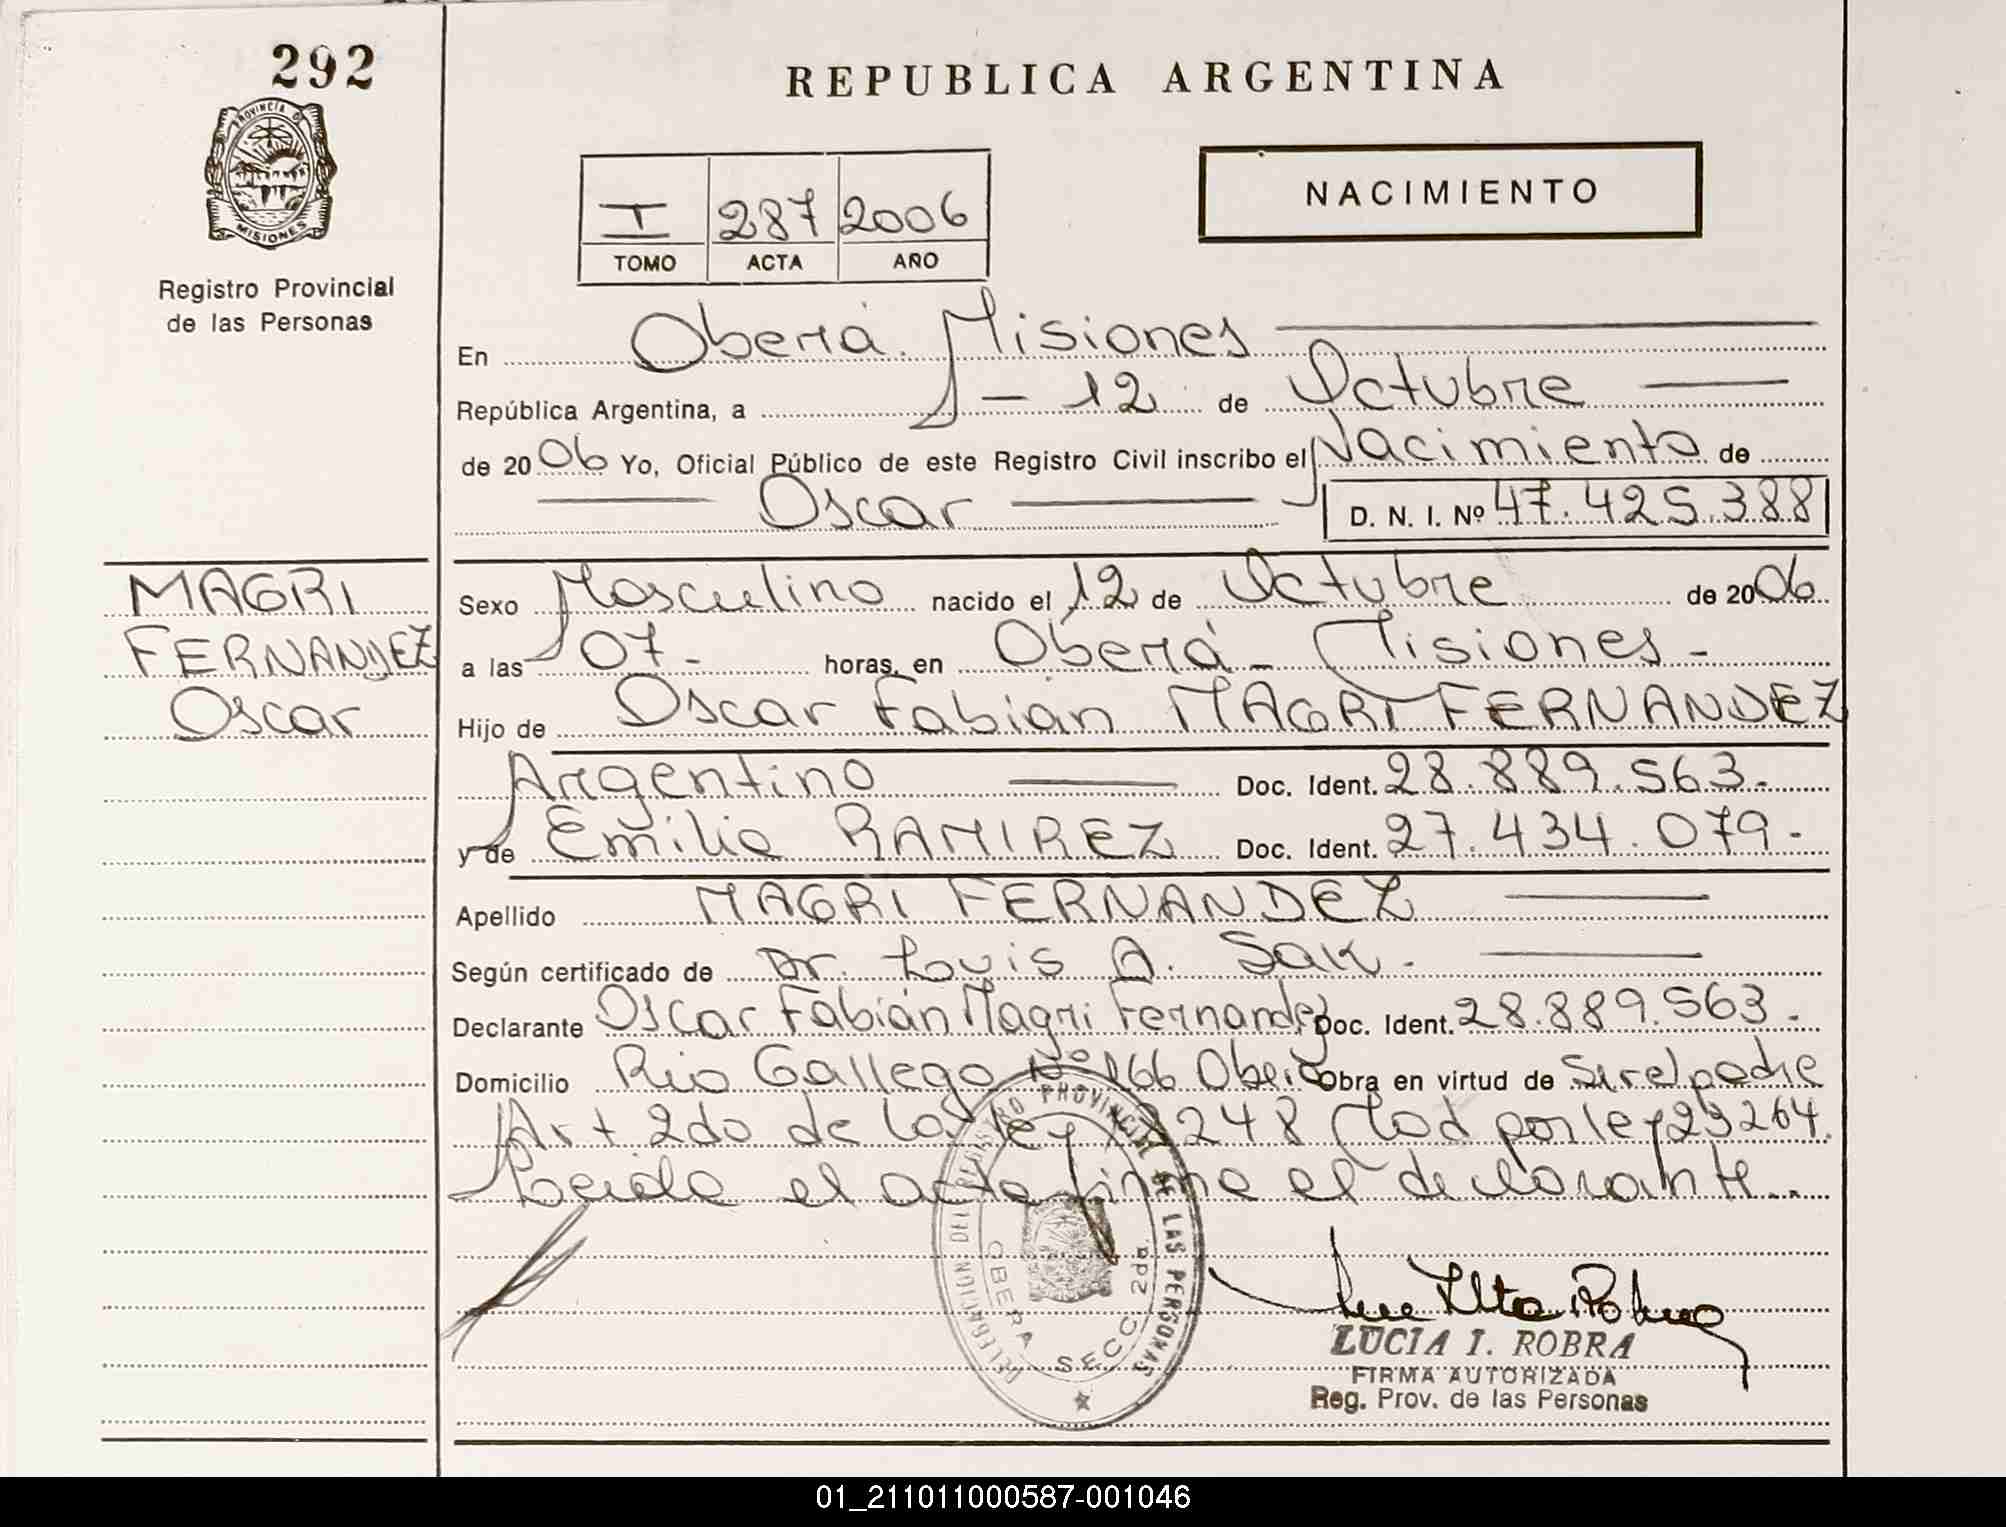 292
PROVINCIA D
MISIONES
Registro Provincial
de las Personas
REPUBLICA ARGENTINA
I 287 2006
TOMO ACTA AÑO
NACIMIENTO
En Oberá. Misiones
República Argentina, a - 12 de Octubre
de 2006 Yo, Oficial Público de este Registro Civil inscribo el Nacimiento de
Oscar D. N. I. Nº 47.425.388
MAGRI
FERNANDEZ
Oscar
Sexo Masculino nacido el 12 de Octubre de 2006
a las 07 - horas, en Oberá - Misiones -
Hijo de Oscar Fabián MAGRI FERNANDEZ
Argentino Doc. Ident. 28.889.563.-
y de Emilia RAMIREZ Doc. Ident. 27.434.079-
Apellido MAGRI FERNANDEZ
Según certificado de Dr. Louis A. Sak.
Declarante Oscar Fabián Magri Fernandez Doc. Ident. 28.889.563.
Domicilio Rio Gallego Nº 166 Oberá Obra en virtud de Ser el padre
Art 2do de la ley 18248 Mod por ley 23264.
Leida el acta firma el declarante..
DELEGACION DEL REGISTRO PROVINCIAL DE LAS PERSONAS
OBERA SECC. 2da.
LUCIA I. ROBRA
FIRMA AUTORIZADA
Reg. Prov. de las Personas
01_211011000587-001046